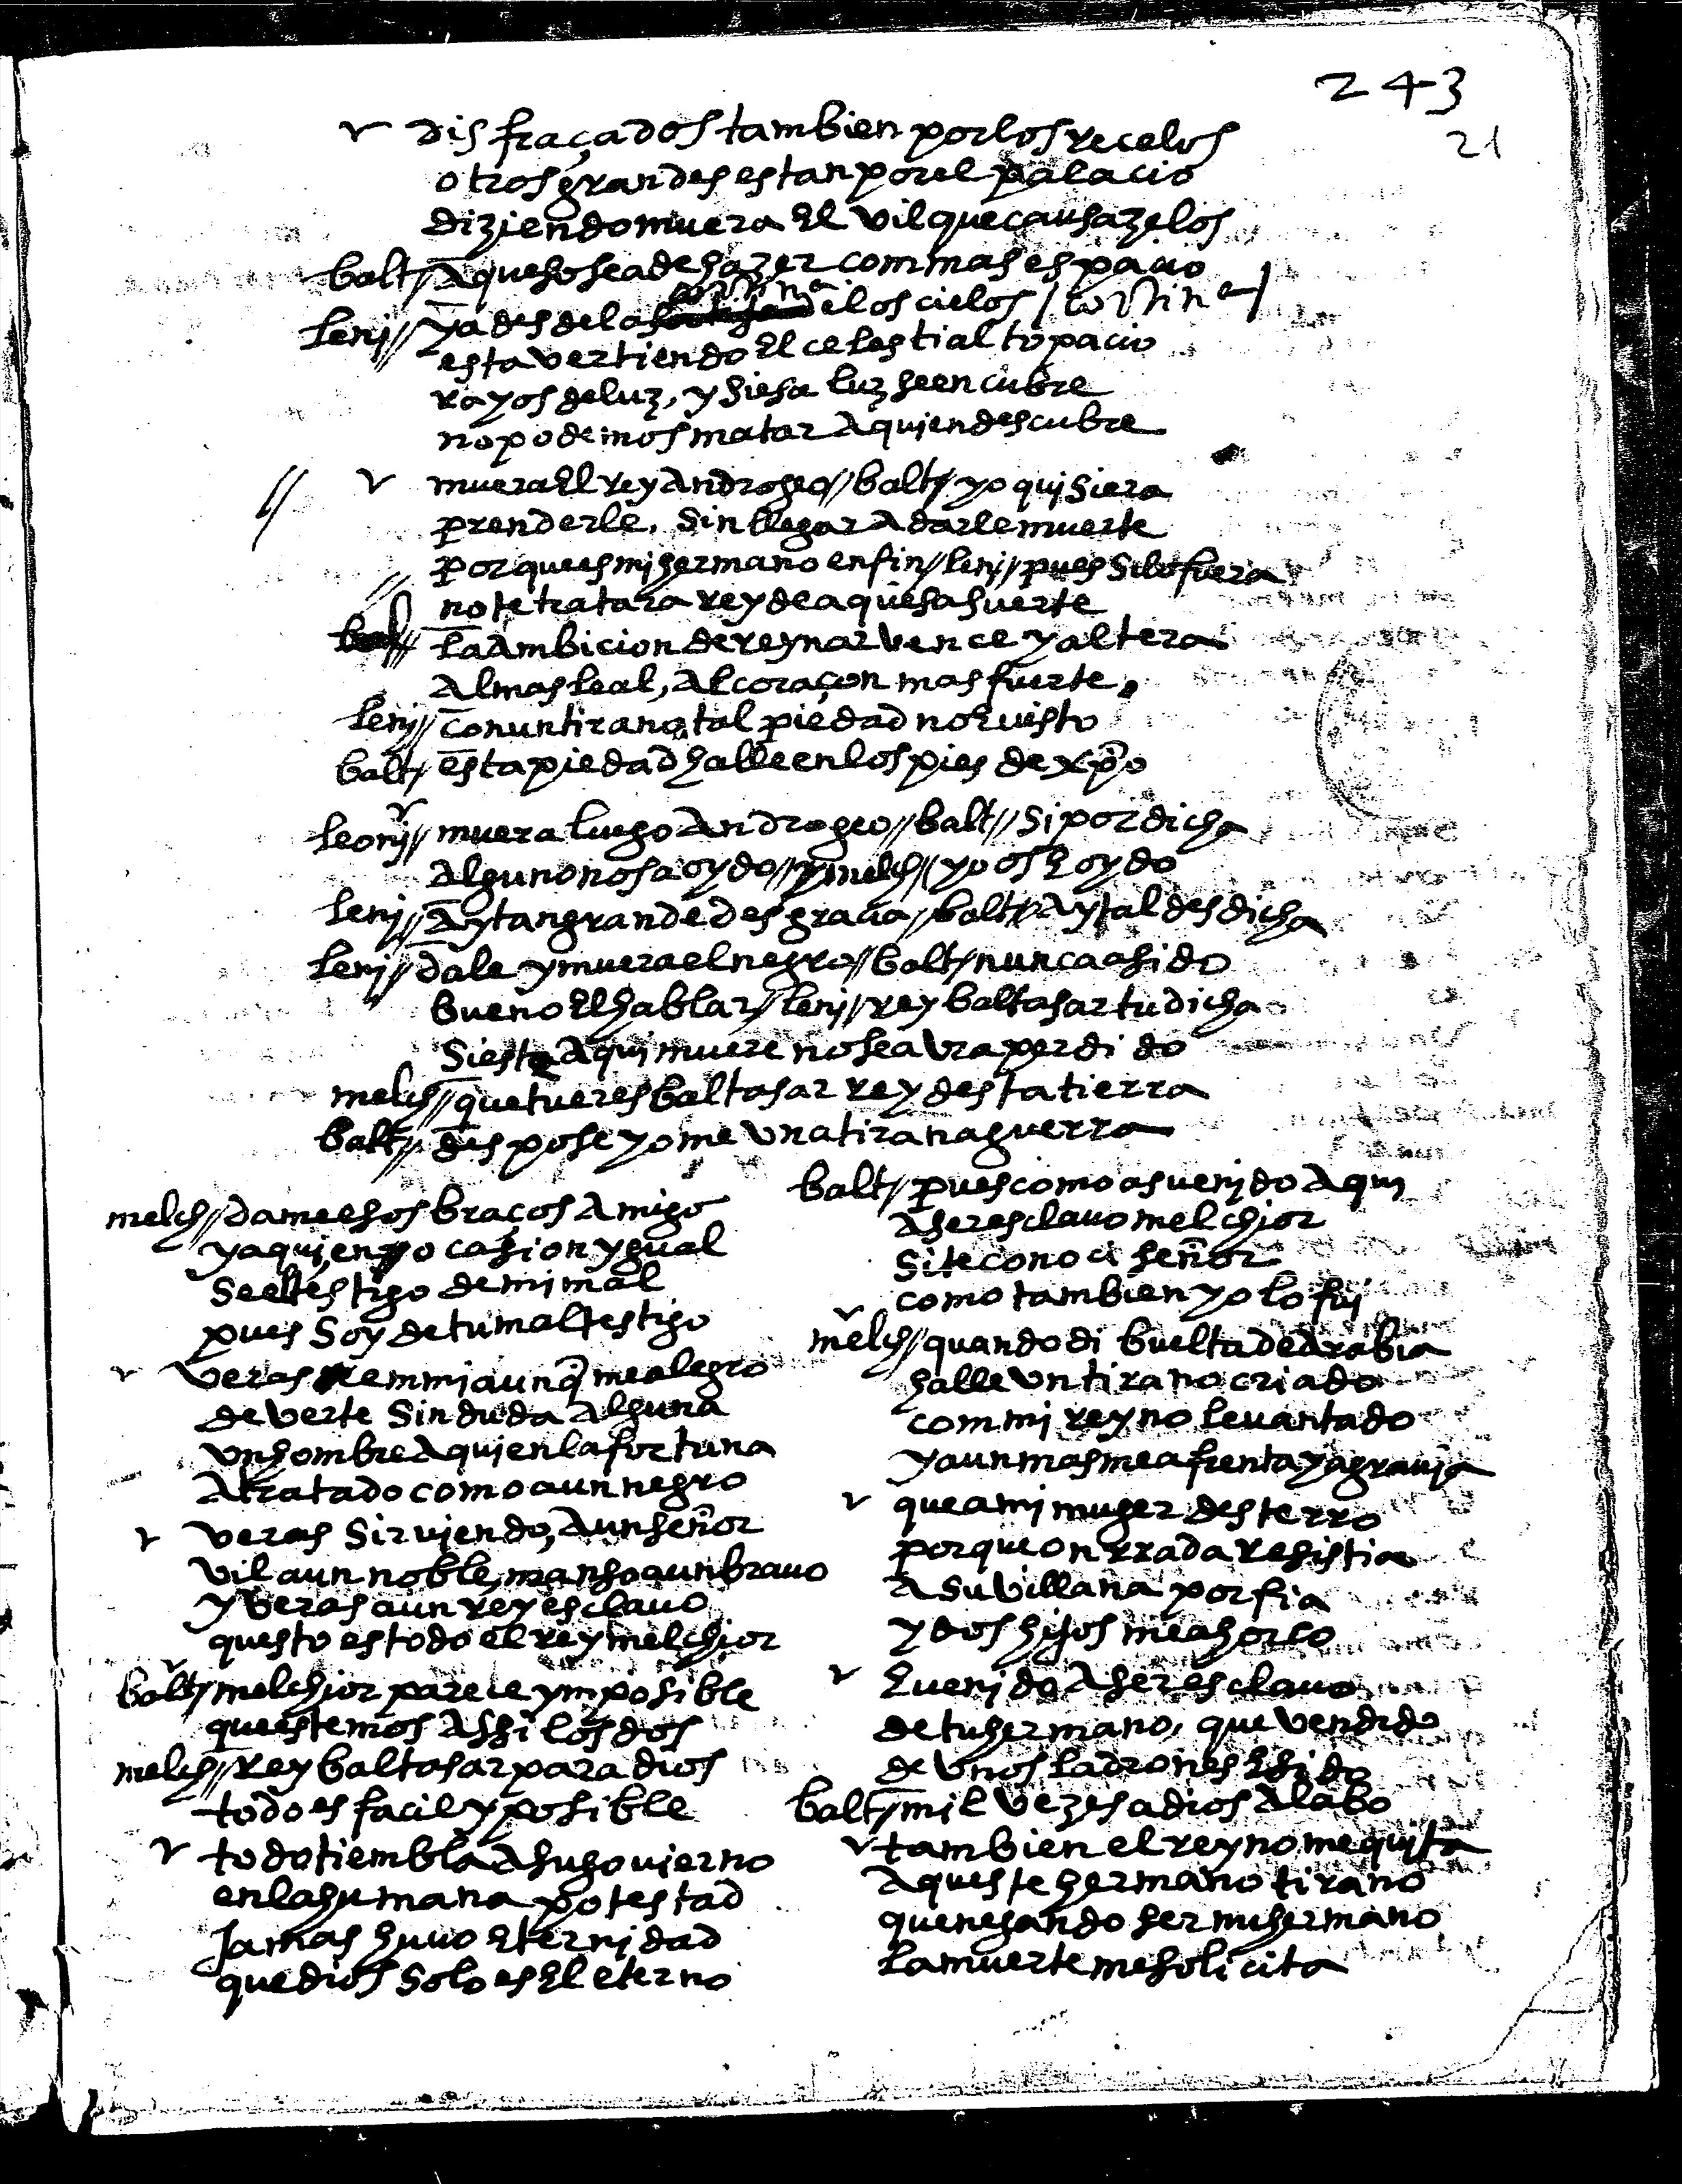 243
21
disfraçados tambien por los recelos
otros grandes estan por el palacio
diziendo muera El vil que causa zelos
balt// Aqueso sea de hazer com mas espacio
leni// ya desde las cortina de los cielos / cortina /
esta vertiendo El celestial topacio
rayos de luz, y si esa luz se encubre
no podemos matar A quien descubre
muera El rey Androgeo // balt// yo quisiera
prenderle, sin llegar A darle muerte
porque es mi hermano en fin // leni // pues si lo fuera
no te tratara rey de aquesa suerte
bal// la Ambicion de reynar vence y altera
Al mas leal, Al coraçon mas fuerte
leni// con un tirano, tal piedad no E visto
balt// esta piedad halle en los pies de xpo
leoni// muera luego Androgeo // balt// si por dicha
Alguno nos a oydo // melch // yo os E oydo
leni// Ay tan grande desgracia // balt// Ay tal desdicha
leni// dale y muera el negro // balt// nunca a sido
bueno El hablar // leni // rey baltasar tu dicha
si este Aqui muere no se avra perdido
melch// que tu eres baltasar rey desta tierra
balt// desposeyome una tirana guerra
melch// dame esos braços Amigo
y aqui en ocasion ygual
se el testigo de mi mal
pues soy de tu mal testigo
veras em mi aunq me alegro
de verte sin duda Alguna
un hombre A quien la fortuna
A tratado como a un negro
veras sirviendo, A un señor
vil a un noble, manso a un bravo
y veras a un rey esclavo
questo es todo el rey melchior
balt// melchior parece ymposible
que estemos Assi los dos
melch// rey baltasar para dios
todo es facil y posible
todo tiembla A su govierno
en la humana potestad
Jamas huvo Eternidad
que dios solo es El eterno
balt// pues como as venido Aqui
A ser esclavo melchior
si te conoci señor
como tambien yo lo fui
melch// quando di buelta de Arabia
halle un tirano criado
com mi reyno levantado
y aun mas me afrenta y agravia
que a mi muger desterro
porque onrrada resistia
A su villana porfia
y dos hijos me ahorco
E venido A ser esclavo
de tu hermano, que vendido
de unos ladrones E sido
balt// mil vezes a dios Alabo
tambien el reyno me quita
Aqueste hermano tirano
que negando ser mi hermano
la muerte me solicita